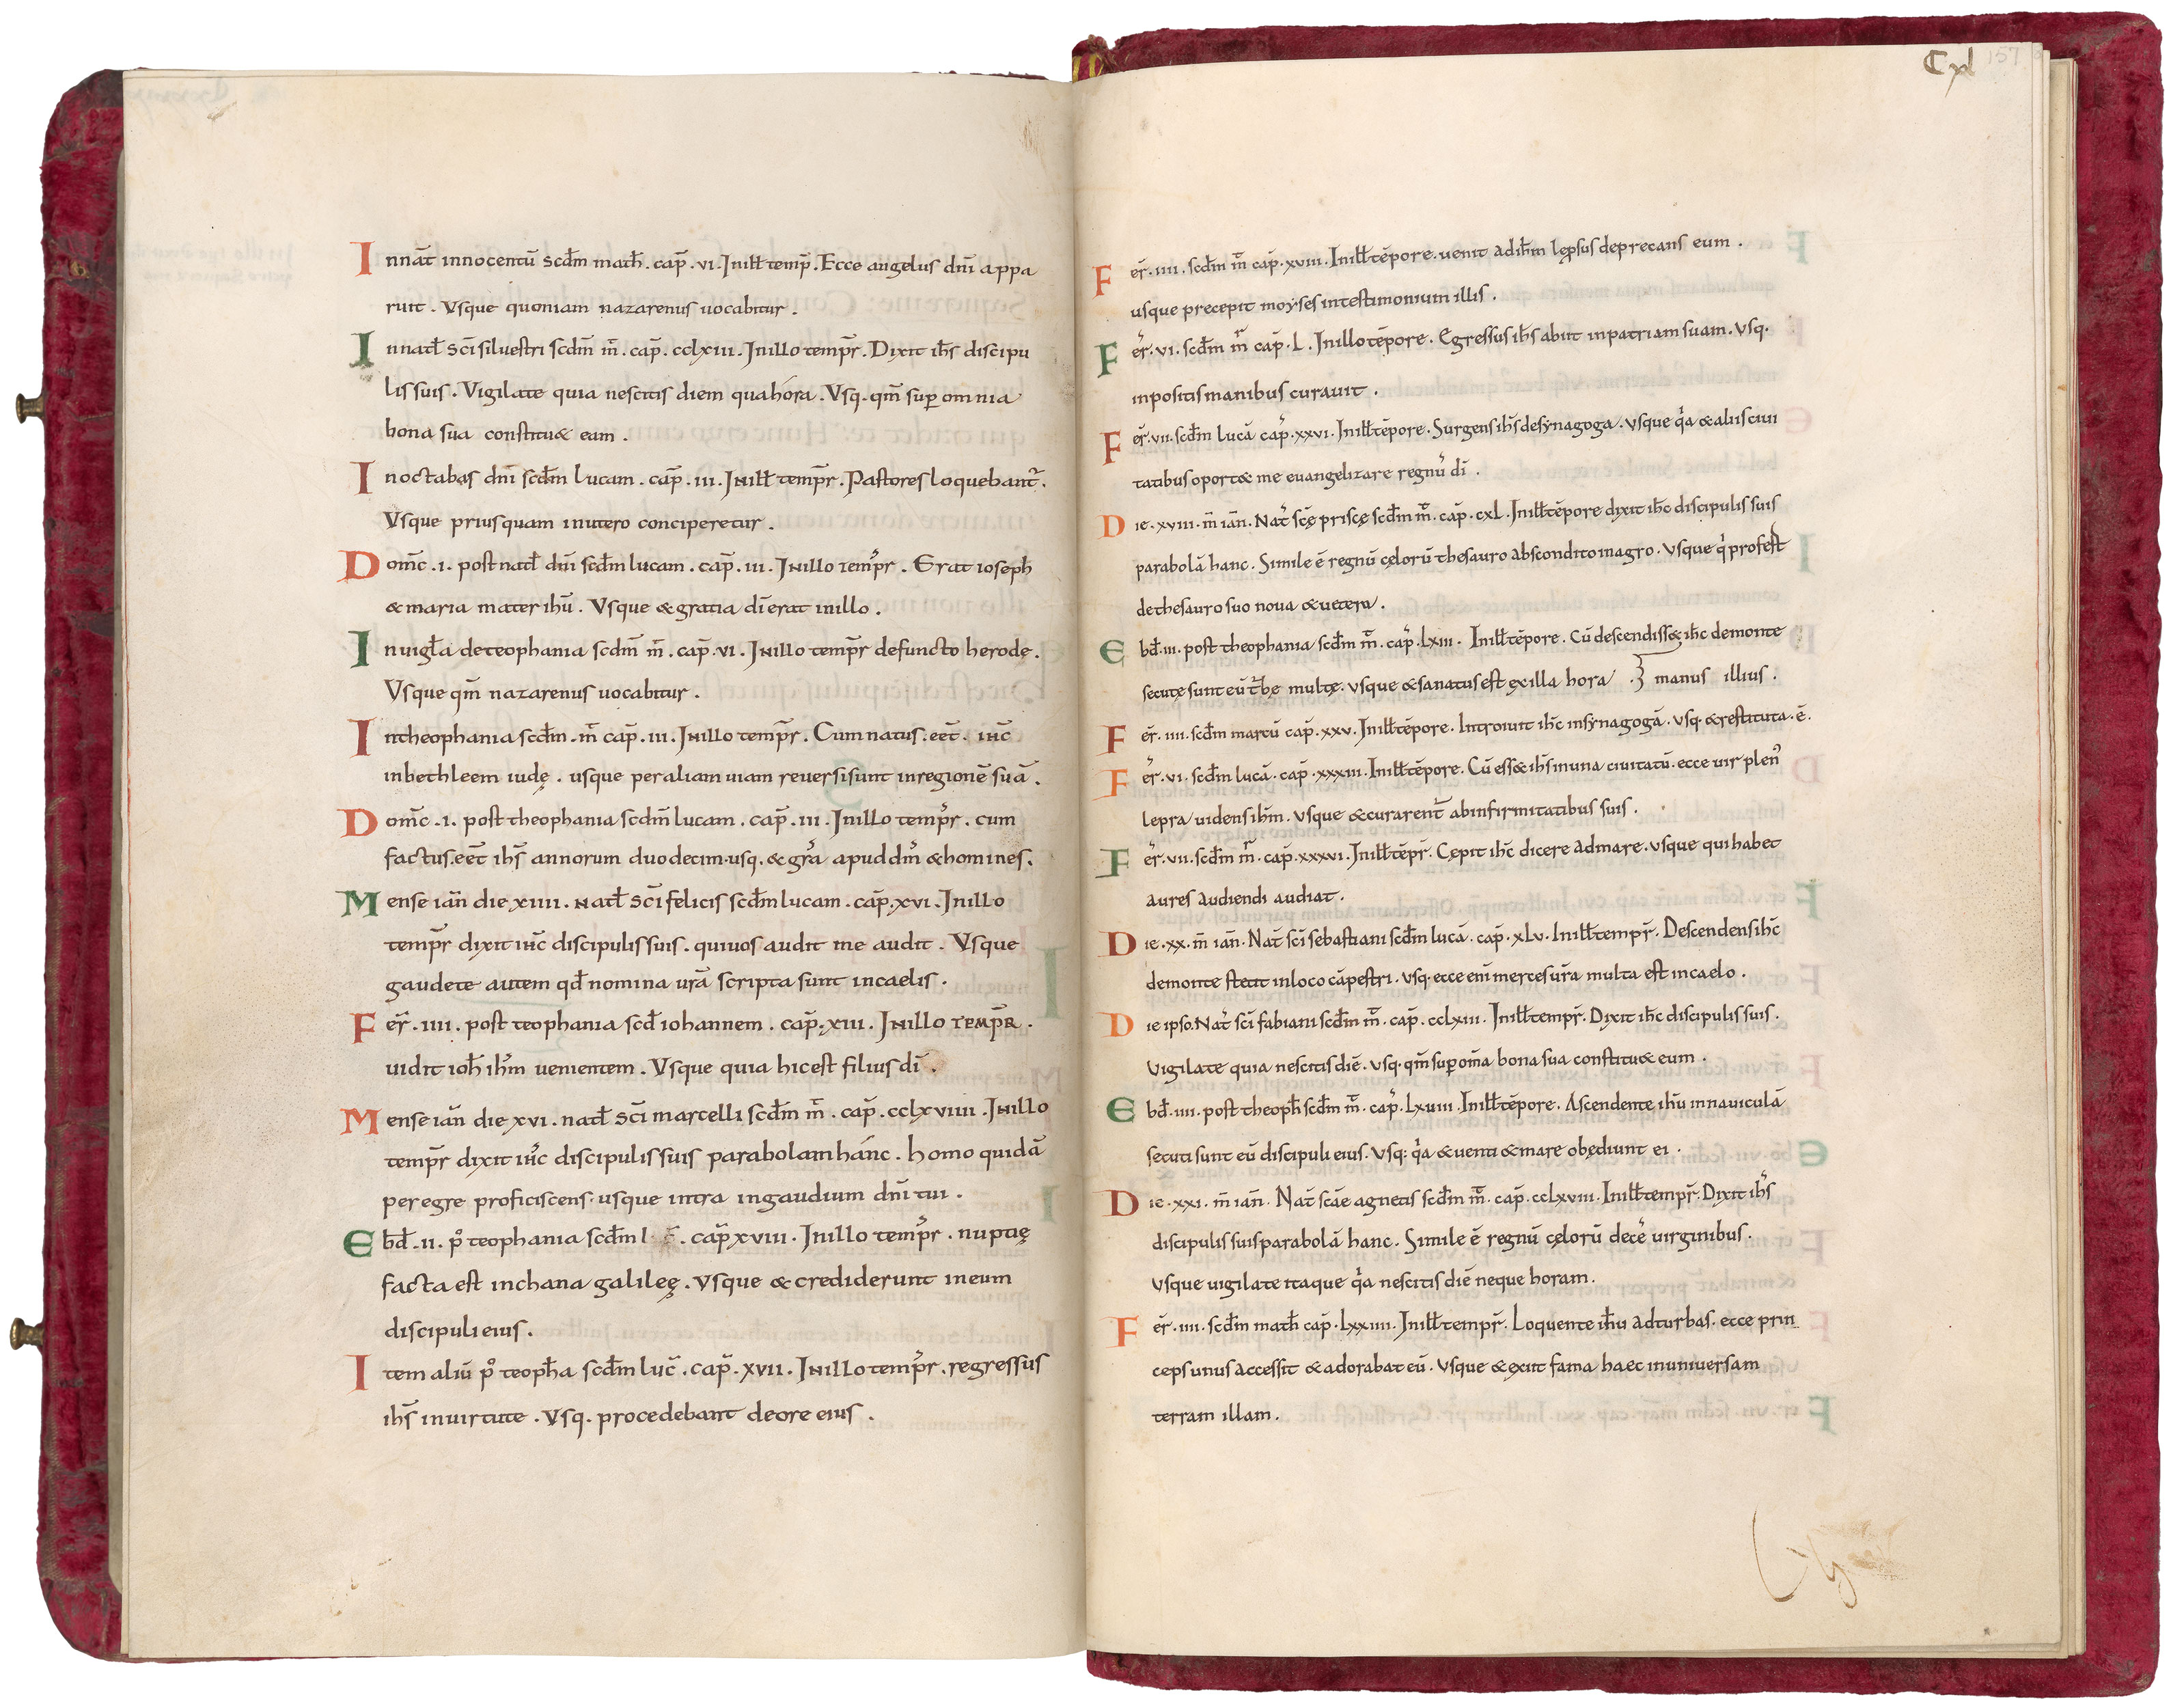 Innat̄ innocentū scd̄m math̄. cap̄. vi. Inill̄ temp̄. Ecce angelus dn̄i appa
ruit. Vsque quoniam nazarenus uocabitur.
Innatł sc̄i siluestri scd̄m m̄. cap̄. cclxiii. Inillo temp̄r. Dixit ih̄s discipu
lis suis. Vigilate quia nescitis diem qua hora. Vsq. qm̄ sup omnia
bona sua constitu& eam.
Inoctabas dn̄i scd̄m lucam. cap̄. iii. Inill̄ temp̄r. Pastores loquebant̄.
Vsque priusquam inutero conciperetur.
Dom̄c. i. post natł dn̄i scd̄m lucam. cap̄. iii. Inillo temp̄r. Erat ioseph
& maria mater ih̄u. Vsque & gratia dī erat inillo.
Inuigła deteophania scd̄m m̄. cap̄. vi. Inillo temp̄r defuncto herode.
Vsque qm̄ nazarenus uocabitur.
Intheophania scd̄m. m̄ cap̄. iii. Inillo temp̄r. Cum natus. eēt. ih̄c
inbethleem iudę. usque per aliam uiam reuersi sunt inregionē suā.
Dom̄c. i. post theophania scd̄m lucam. cap̄. iii. Inillo temp̄r. cum
factus. eēt ih̄s annorum duodecim. usq. & gr̄a apud dm̄ & homines.
Mense ian̄ die xiiii. natł sc̄i felicis scd̄m lucam. cap̄. xvi. Inillo
temp̄r dixit ih̄c discipulis suis. qui uos audit me audit. Vsque
gaudete autem qd̄ nomina ur̄a scripta sunt incaelis.
Fer̄. iiii. post teophania scd̄ iohannem. cap̄. xiii. Inillo temp̄r.
uidit ioh̄ ih̄m uenientem. Vsque quia hic est filius dī.
Mense ian̄ die xvi. natł sc̄i marcelli scd̄m m̄. cap̄. cclxviiii. Inillo
temp̄r dixit ih̄c discipulis suis parabolam hanc. homo quidā
peregre proficiscens. usque intra ingaudium dn̄i tui.
Ebd̄. ii. p̊ teophania scd̄m cap̄ xviii. Inillo temp̄r. nuptię
facta est inchana galileę. Vsque & crediderunt ineum
discipuli eius.
Item aliū p̊ teoph̄a scd̄m luc̄. cap̄. xvii. Inillo temp̄r. regressus
ih̄s inuirtute. Vsq. procedebant deore eius.
Cxl 157
Fer̄. iiii. scd̄m m̄ cap̄. xviii. Inill̄ tēpore. uenit adih̄m lepsus deprecans eum.
usque precepit moyses intestimonium illis.
Fer̄. vi. scd̄m m̄ cap̄. L. Inillo tēpore. Egressus ih̄s abiit inpatriam suam. Vsq.
inpositis manibus curauit.
Fer̄. vii. scd̄m lucā cap̄. xxvi. Inill̄ tēpore. Surgens ih̄s desynagoga. Vsque q̄a & aliis ciui
tatibus oport& me euangelizare regnū dī.
Die. xviii. m̄ iān. Nat̄ sc̄ę priscę scd̄m m̄. cap̄. cxl. Inill̄ tēpore dixit ih̄c discipulis suis
parabolā hanc. Simile ē regnū cęlorū thesauro abscondito inagro. Vsque q̄ profest
dethesauro suo noua & uetera.
Ebd̄. iii. post theophania scd̄m m̄. cap̄. lxiii. Inill̄ tēpore. Cū descendiss& ih̄c demonte
secutę sunt eū t̄bę multę. usque & sanatus est exilla hora. manus illius.
Fer̄. iiii. scd̄m marcū cap̄. xxv. Inill̄ tēpore. Introiuit ih̄c insynagogā. Vsq. & restituta. ē.
Fer̄. vi. scd̄m lucā. cap̄. xxxiii. Inill̄ tēpore. Cū ess& ih̄s inuna ciuitatū. ecce uir plen̄
lepra uidens ih̄m. Vsque & curarent̄ abinfirmitatibus suis.
Fer̄. vii. scd̄m m̄. cap̄. xxxvi. Inill̄ tēpr̄. Cępit ih̄c dicere admare. usque qui habet
aures audiendi audiat.
Die. xx. m̄ iān. Nat̄ sc̄i sebastiani scd̄m lucā. cap̄. xlv. Inill̄ tempr̄. Descendens ih̄c
demonte stetit inloco cāpestri. Vsq. ecce eni merces ur̄a multa est incaelo.
Die ipso. Nat̄ sc̄i fabiani scd̄m m̄. cap̄. cclxiii. Inill̄ tempr̄. Dixit ih̄c discipulis suis.
Vigilate quia nescitis diē. Vsq. qm̄ sup om̄a bona sua constitu& eum.
Ebd̄. iiii. post theoph̄ scd̄m m̄. cap̄. Lxviii. Inill̄ tēpore. Ascendente ih̄u innauiculā
secuti sunt eū discipuli eius. Vsq: q̄a & uenti & mare obędiunt ei.
Die. xxi. m̄ iān. Nat̄ scāe agnetis scd̄m m̄. cap̄. cclxviii. Inill̄ tempr̄. Dixit ih̄s
discipulis suis parabolā hanc. Simile ē regnū cęlorū decē uirginibus.
Vsque uigilate itaque q̄a nescitis diē neque horam.
Fer̄. iiii. scd̄m math̄ cap̄. Lxxiiii. Inill̄ tempr̄. Loquente ih̄u adturbas. ecce prin
ceps unus accessit & adorabat eū. Vsque & exiit fama haec inuniuersam
terram illam.